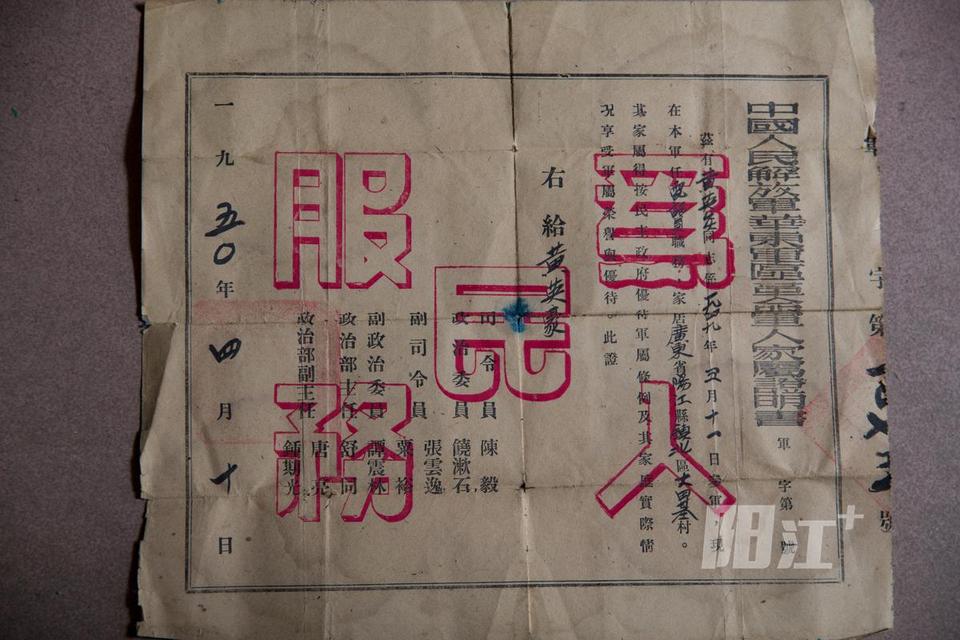 字第 號
中國人民解放軍華東軍區革命軍人家屬證明書 軍字第 號
茲有黃英 同志係一九四九年五月十一日參軍,現
在本軍任 職務,家居廣東省陽江縣 區大田基村。
其家屬得按民主政府優待軍屬條例及其家庭實際情
況享受軍屬榮譽與優待。此證
右給黃英豪
司令員 陳毅
政治委員 饒漱石
副司令員 張雲逸
粟裕
副政治委員 譚震林
政治部主任 舒同
政治部副主任 唐亮
鍾期光
一九五〇年四月十日
爲人民服務
阳江+